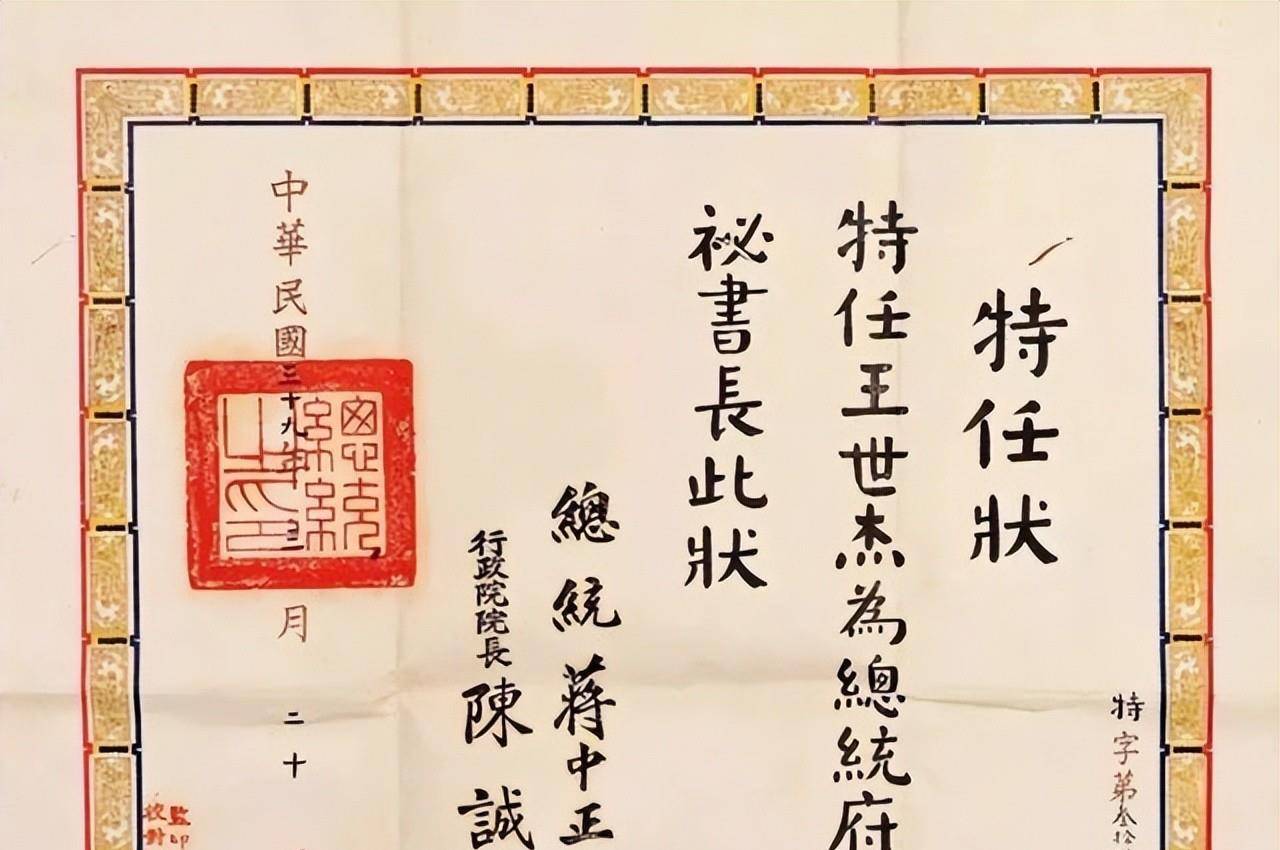 特字第叁拾
特任狀
特任王世杰為總統府
祕書長此狀
總統蔣中正
行政院院長陳誠
中華民國三十九年三月二十
總統之印
監印
校對